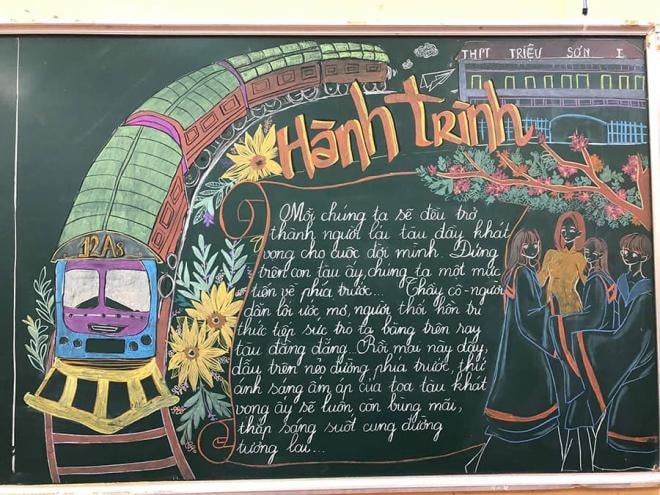 THPT TRIỆU SƠN I
Hành trình
12A5
Mỗi chúng ta sẽ đều trở
thành người lái tàu đầy khát
vọng cho cuộc đời mình. Đứng
trên con tàu ấy, chúng ta một mực
tiến về phía trước... Thầy cô - người
dẫn lối ước mơ, người thổi hồn tri
thức tiếp sức trò ta băng trên ray
tàu đằng đẵng. Rồi mai này đây,
dẫu trên nẻo đường phía trước, thứ
ánh sáng ấm áp của toa tàu khát
vọng ấy sẽ luôn còn bùng mãi,
thắp sáng suốt cung đường
tương lai...